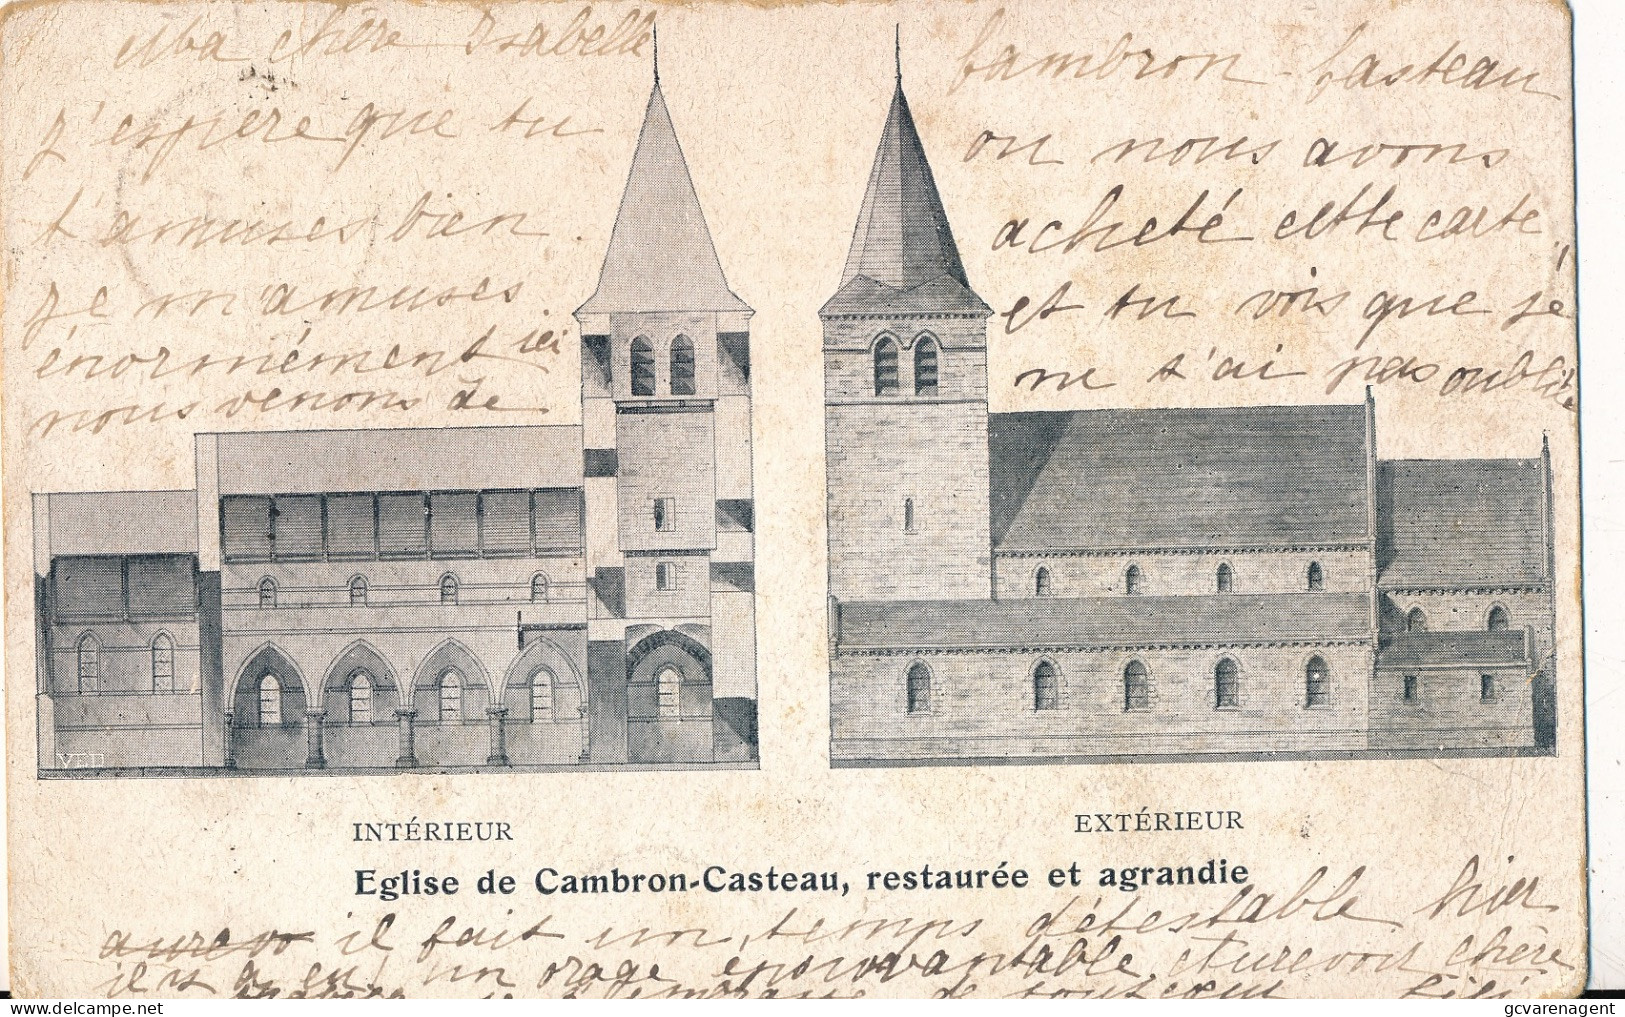 Ma chère Isabelle
j'espère que tu
t'amuses bien.
je m'amuses
énormément ici
nous venons de
Cambron-Casteau
ou nous avons
acheté cette carte
et tu vois que je
ne t'ai pas oublié
VED
INTÉRIEUR
EXTÉRIEUR
Eglise de Cambron-Casteau, restaurée et agrandie
aurevo il fait un temps détestable hier
il y a eu un orage épouvantable. Aurevoir chère
je t'embrasse de tout cœur
gcvarenagent
delcampe.net